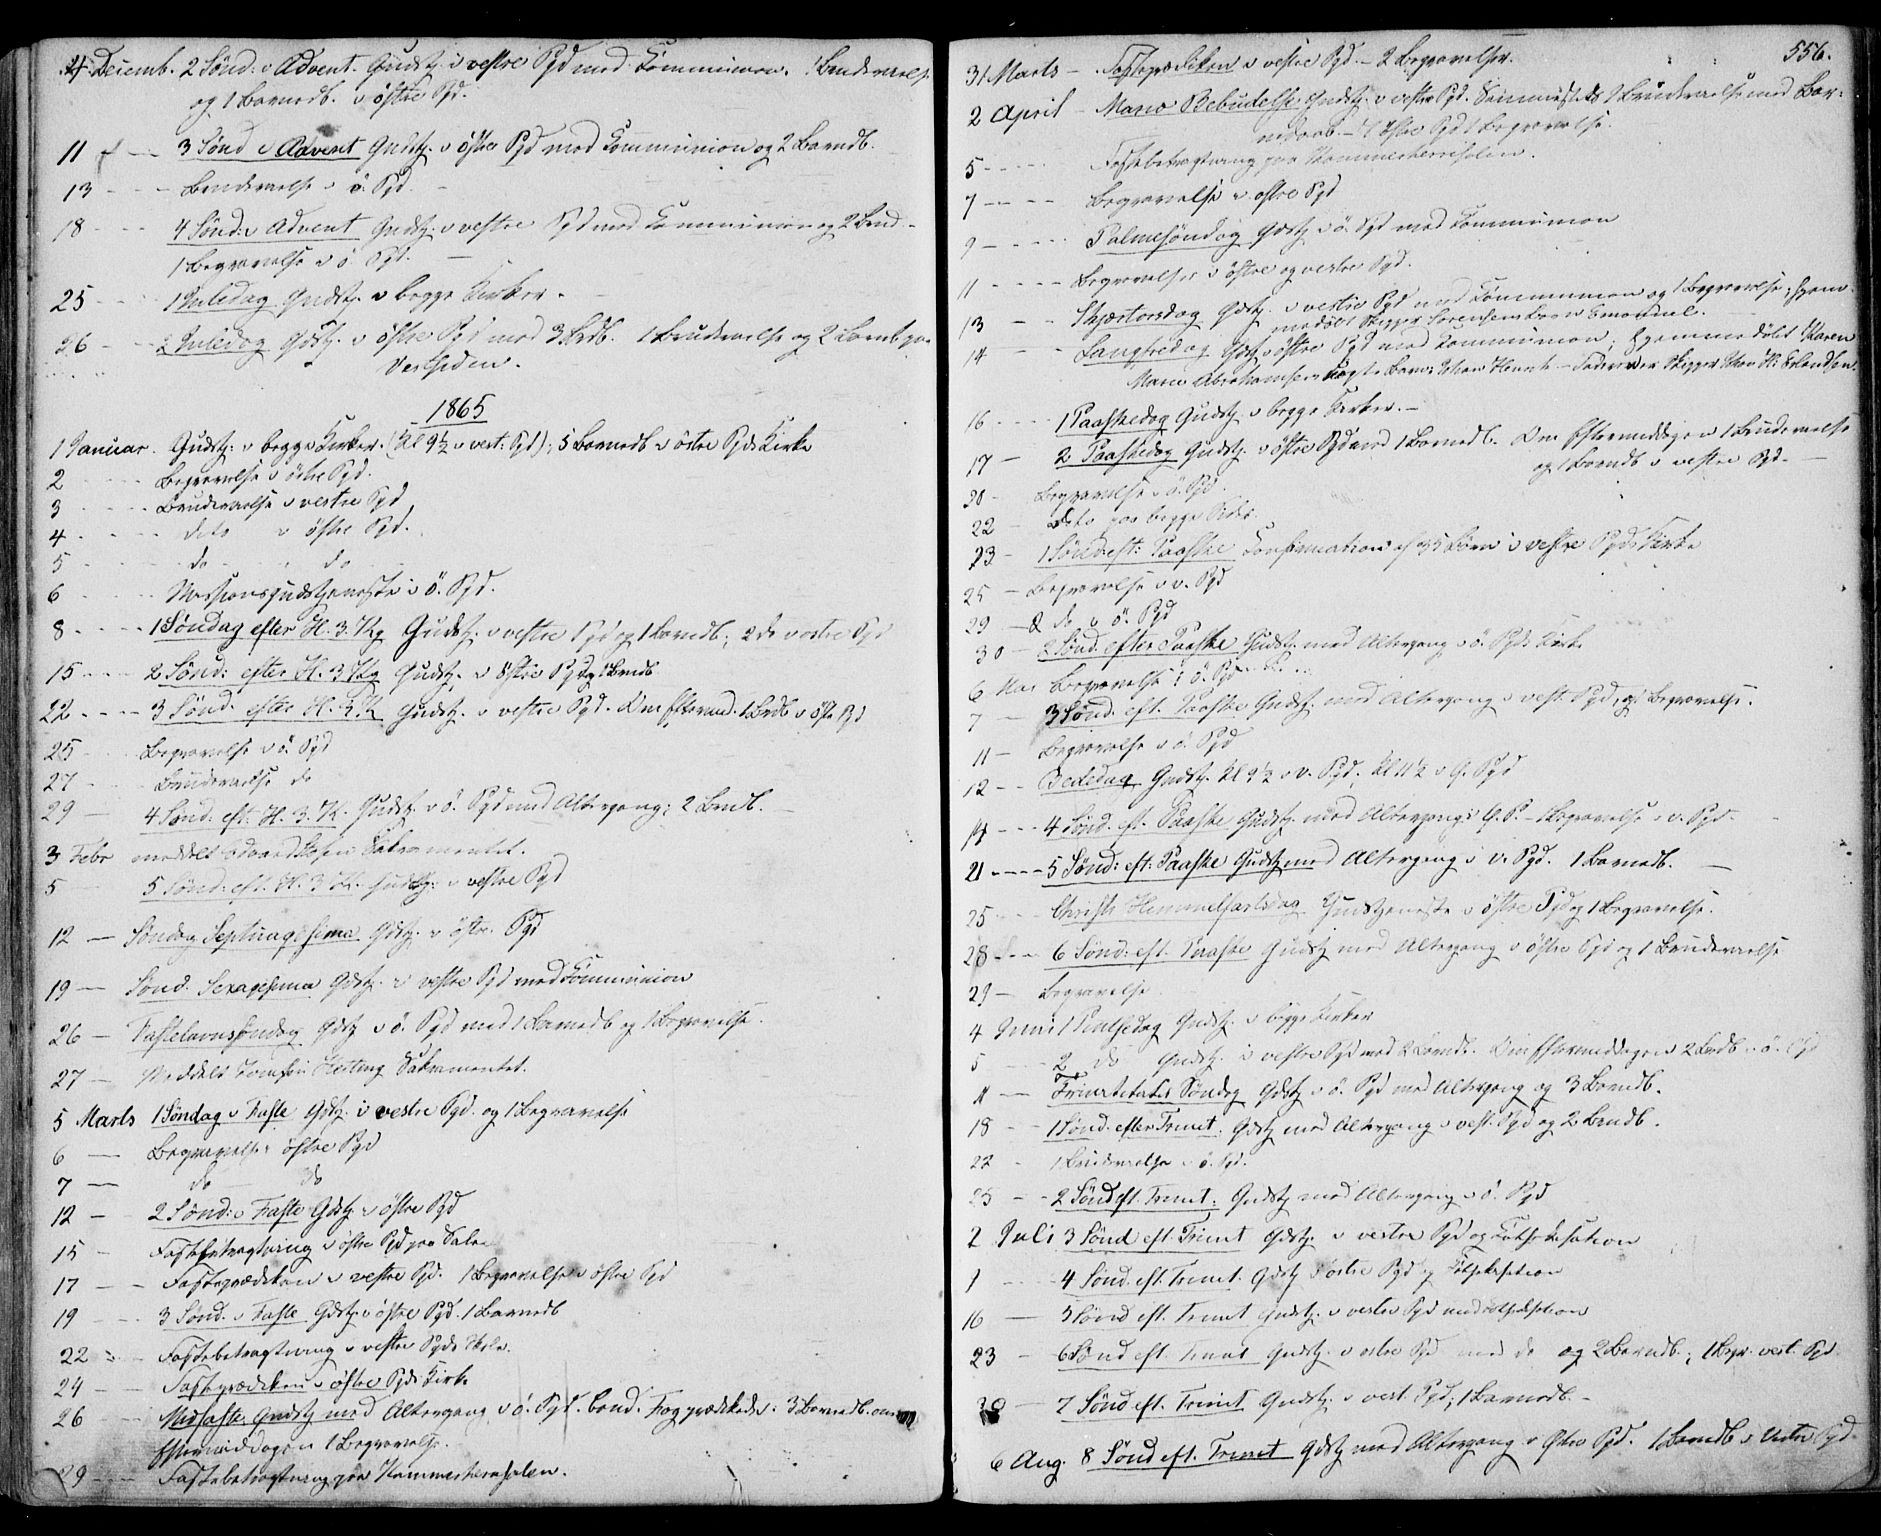 4 Decemb. 2 Sønd. i Advent. Gudstj. i vestre Pgd med Communion. 1 Brudevielse
og 1 Barnedb. i østre Pgd.
11 - - 3 Sønd i Advent Gudstj. i østre Pgd med Communion og 2 Barndb.
13 - - - Brudevielse i ö. Pgd.
18 - - - 4 Sønd: i Advent Gudstj. i vestre Pgd med Communion og 2 Brnd
1 Begravelse i ö. Pgd.
25 - - - 1 Juledag Gudstj. i begge Kirker.
26 - - 2 Juledag Gdstj. i østre Pgd med 3 Brdb. 1 Brudevielse og 2 Barnb paa
Vestsiden.
1865
1 Januar. Gudstj. i begge Kirker. (Kl 9½ i vest. Pgd); 5 Barnedb i østre Pgds Kirke
2 - - - Begravelse i østre Pgd.
3 - - - Brudevielse i vestre Pgd
4 - - - dito i østre Pgd.
5 - - - do do
6 - - - Missionsgudstjeneste i ö. Pgd.
8 - - - 1 Søndag efter H. 3. Kg Gudstj. i vestre Pgd og 1 Barndb; 2 do i østre Pgd
15 - - - 2 Sønd: efter H. 3 Kg Gudstj. i østre Pgd og 1 Brndb
22 - - - 3 Sønd. efter H. 3. K Gudstj. i vestre Pgd. Om Eftermid. 1 Brdb i øst Pgd
25 Begravelse i ö. Pgd
27 Brudevielse do
29 - 4 Sønd. eft. H. 3. K. Gudstj. i ö. Pgd med Altergang; 2 Brndb.
3 Febr meddelt Edvard Sakramentet.
5 5 Sønd. eft. H. 3 K. Gudstj. i vestre Pgd
12 - Søndag Septuagesima Gdstj. i østre Pgd
19 - Sønd. Sexagesima Gdstj. i vestre Pgd med Communion
26 - Fastelavnssøndag Gdstj i ö. Pgd med 1 Barnedb og 1 Begravelse.
27 - Meddelt Sakramentet.
5 Marts 1 Søndag i Faste Gdstj. i vestre Pgd. og 1 Begravelse
6 - Begravelse i østre Pgd
7 - do do
12 - 2 Sønd: i Faste Gdstj. i østre Pgd
15 - Fastebetragtning i østre Pgd paa Salen
17 - - Fasteprædiken i vestre Pgd. 1 Begravelse i østre Pgd
19 - - 3 Sønd. i Faste Gdstj. i østre Pgd. 1 Barnedb
22 - - Fastebetragtning i vestre Pgds Skole.
24 - - Fasteprædiken i østre Pgds Kirke
26 - Midfaste Gudstj med Altergang i ö. Pgd. Cand. Fog prædikede. 3 Barnedb. om
Eftermiddagen 1 Begravelse.
29 - - Fastebetragtning paa Kammerherresalen.
556.
31 Marts - Fasteprædiken i vestre Pgd. - 2 Begravelser.
2 April - Mariæ Bebudelse Gudstj. i vestre Pgd. Sammesteds 1 Brudevielse med Bar-
nedaab. - I østre Pgd 1 Begravelse.
5 - - - Fastebetragtning paa Kammerherresalen.
7 - - - Begravelse i østre Pgd
9 - - - Palmesøndag Gdstj i ö. Pgd med Communion
11 - - - Begravelser i østre og vestre Pgd.
13 - - Skjærtorsdag Gdstj. i vestre Pgd med Communion og 1 Begravelse; Hjem-
medøbt Skipper Sørensens Barn Emanuel.
14 - - Langfredag Gdstj i østre Pgd med Communion; Hjemmedøbt Karen
Marie Abrahamsens uægte Barn: Johan Henrik - Faderen er Skipper H. Erlandsen.
16 - - - 1 Paaskedag Gudstj. i begge Kirker. -
17 - 2 Paaskedag Gudstj. i østre Pgd med 1 Barnedb. Om Eftermiddagen 1 Brudevielse
og 1 Barndb i vestre Pgd. -
20 - Begravelse i ö. Pgd.
22 - Dito paa begge Sider.
23 - 1 Sønd. eft: Paaske Confirmation af 35 Børn i vestre Pgds Kirke
25 - Begravelse i v. Pgd
29 - 2 do i ö. Pgd
30 - 2 Sønd. efter Paaske Gudstj. med Altergang i ö. Pgds Kirke
6 Mai Begravelse i ö. Pgd
7 - 3 Sønd. eft. Paaske Gudstj. med Altergang i vest. Pgd, og Begravelse.
11 - Begravelse i ö. Pgd
12 - - Bededag Gudstj. Kl 9½ i v. Pgd, Kl 11½ i Ø. Pgd
14 - - - 4 Sønd. eft. Paaske Gudstj. med Altergang i Ø. P. - 1 Begravelse i v. Pgd.
21 - - - 5 Sønd: eft: Paaske Gudstj med Altergang i v. Pgd. 1 Barnedb. -
25 - - - Christi Himmelfartsdag Gudstjeneste i østre Pgd og 1 Begravelse.
28 - - - 6 Sønd: eft. Paaske Gudstj med Altergang i østre Pgd og 1 Brudevielse
29 - Begravelse
4 Juni 1 Pintsedag Gudstj. i begge Kirker
5 - 2 do Gudstj. i vestre Pgd med 2 Barndb. Om Eftermiddagen 2 Brdb i ö. Pgd
11 - - Trinitatis Søndag Gdstj i ö. Pgd med Altergang og 3 Barndb.
18 - - 1 Sønd. efter Trinit. Gdstj med Altergang i vest. Pgd og 2 Brndb.
22 - 1 Brudevielse i ö. Pgd.
25 - - 2 Sønd eft. Trinit. Gudstj med Altergang i ö. Pgd
2 Juli 3 Sønd eft. Trinit Gdstj. i vestre Pgd og Cathekisation
9 - - 4 Sønd. eft. Trinit. Gdstj i østre Pgd og Cathekisation
16 - - 5 Sønd eft. Trinit Gudstj. i vestre Pgd med Cathekisation
23 - 6 Sønd eft. Trinit Gudstj. i østre Pgd med do og 2 Barndb.; 1 Begr. vest. Pgd.
30 - 7 Sønd eft. Trinit Gudstj. i vest. Pgd; 1 Barnedb. -
6 Aug. 8 Sønd eft. Trinit Gdstj med Altergang i Østre Pgd. 1 Barndb i Vestre Pgd.